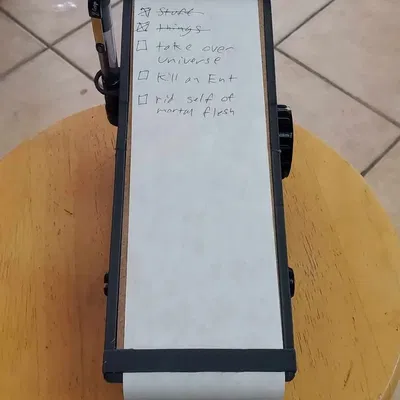 Stuff
things
take over
universe
kill an Ent
rid self of
mortal flesh